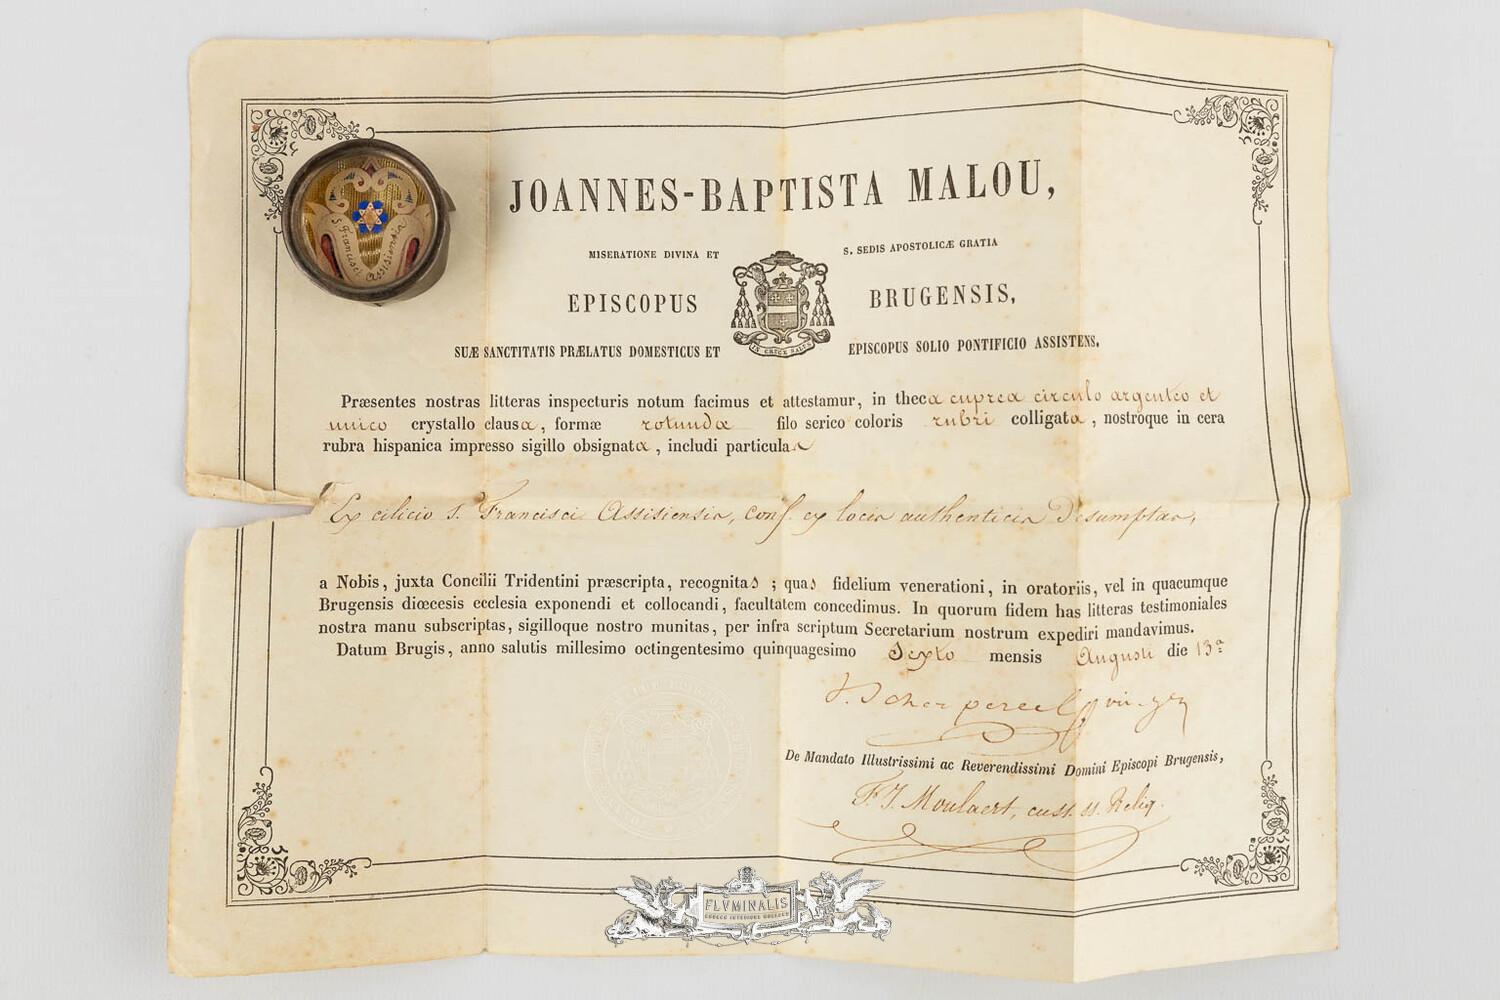 S. Francisci Assisiensis
JOANNES-BAPTISTA MALOU,
MISERATIONE DIVINA ET S. SEDIS APOSTOLICÆ GRATIA
EPISCOPUS BRUGENSIS,
SUÆ SANCTITATIS PRÆLATUS DOMESTICUS ET EPISCOPUS SOLIO PONTIFICIO ASSISTENS.
IN CRUCE SALUS
Præsentes nostras litteras inspecturis notum facimus et attestamur, in theca cuprea circulo argenteo et
unico crystallo clausa, formæ rotundæ filo serico coloris rubri colligata, nostroque in cera
rubra hispanica impresso sigillo obsignata, includi particulas
Ex cilicio S. Francisci Assisiensis, conf. ex locis authenticis desumptas,
a Nobis, juxta Concilii Tridentini præscripta, recognitas; quas fidelium venerationi, in oratoriis, vel in quacumque
Brugensis diœcesis ecclesia exponendi et collocandi, facultatem concedimus. In quorum fidem has litteras testimoniales
nostra manu subscriptas, sigilloque nostro munitas, per infra scriptum Secretarium nostrum expediri mandavimus.
Datum Brugis, anno salutis millesimo octingentesimo quinquagesimo Sexto mensis Augusti die 13ª
De Mandato Illustrissimi ac Reverendissimi Domini Episcopi Brugensis,
F. J. Moulaert, cust. ss. Reliq.
FLVMINALIS